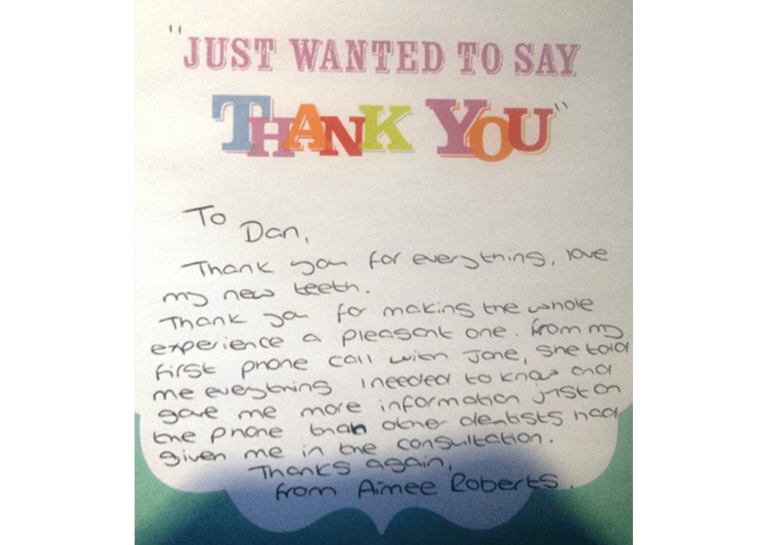 "JUST WANTED TO SAY
THANK YOU"
To
Dan,
Thank you for everything, love
my new teeth.
Thank you for making the whole
experience a pleasant one. from my
first phone call with Jane, she told
me everything I needed to know and
gave me more information just on
the phone than other dentists had
given me in the consultation.
Thanks again,
from Aimee Roberts.